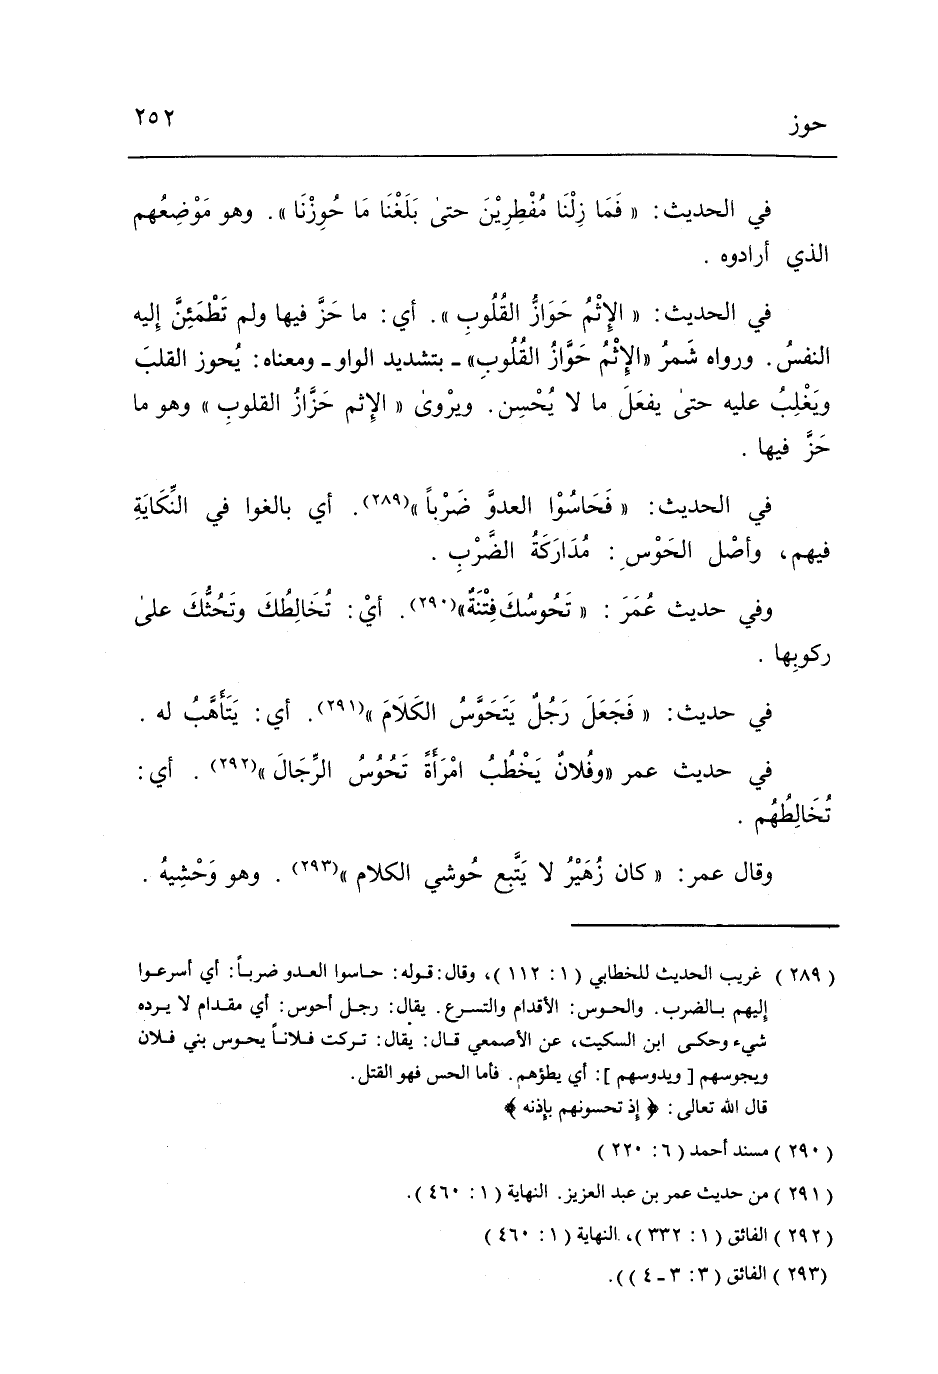 حوز
٢٥٢
في الحديث: « فَمَا زِلْنَا مُفْطِرِيْنَ حتىٰ بَلَغْنَا مَا حُوِزْنَا ». وهو مَوْضِعُهم
الذي أرادوه .
في الحديث: « الإِثْمُ حَوَازُّ القُلُوبِ ». أي: ما حَزَّ فيها ولم تَطْمَئِنَّ إليه
النفسُ. ورواه شَمرُ «الإِثْمُ حَوَّازُ القُلُوبِ» ـ بتشديد الواو ـ ومعناه: يُحوز القلبَ
ويَغْلِبُ عليه حتىٰ يفعَلَ ما لا يُحْسِن. ويرْوىٰ « الإثم حَزَّازُ القلوبِ » وهو ما
حَزَّ فيها .
في الحديث: « فَحَاسُوْا العدوَّ ضَرْباً »(٢٨٩). أي بالغوا في النِّكَايَةِ
فيهم، وأصْل الحَوْسِ: مُدَارَكَةُ الضَّرْبِ .
وفي حديث عُمَرَ : « تَحُوسُكَ فِتْنَةٌ»(٢٩٠). أيْ: تُخَالِطُكَ وتَحُثُّكَ علىٰ
ركوبِها .
في حديث: « فَجَعَلَ رَجُلٌ يَتَحَوَّسُ الكَلَامَ »(٢٩١). أي: يَتَأَهَّبُ له .
في حديث عمر «وفُلانٌ يَخْطُبُ امْرَأَةً تَحُوُسُ الرِّجَالَ »(٢٩٢) . أي:
تُخَالِطُهُم .
وقال عمر: « كان زُهَيْرُ لا يَتَّبِع حُوشي الكلام »(٢٩٣) . وهو وَحْشِيهُ .
( ٢٨٩ ) غريب الحديث للخطابي ( ١ : ١١٢ )، وقال: قوله: حاسوا العدو ضرباً: أي أسرعوا
إليهم بالضرب. والحوس: الأقدام والتسرع. يقال: رجل أحوس: أي مقدام لا يرده
شيء وحكى ابن السكيت، عن الأصمعي قال: يقال: تركت فلاناً يحوس بني فلان
ويجوسهم [ ويدوسهم ]: أي يطؤهم. فأما الحس فهو القتل.
قال الله تعالى: ﴿ إذ تحسونهم بإذنه ﴾
( ٢٩٠ ) مسند أحمد ( ٦ : ٢٢٠ )
( ٢٩١ ) من حديث عمر بن عبد العزيز. النهاية ( ١ : ٤٦٠ ).
( ٢٩٢ ) الفائق ( ١ : ٣٣٢ )، النهاية ( ١ : ٤٦٠ )
(٢٩٣ ) الفائق ( ٣ : ٣ ـ ٤ )).